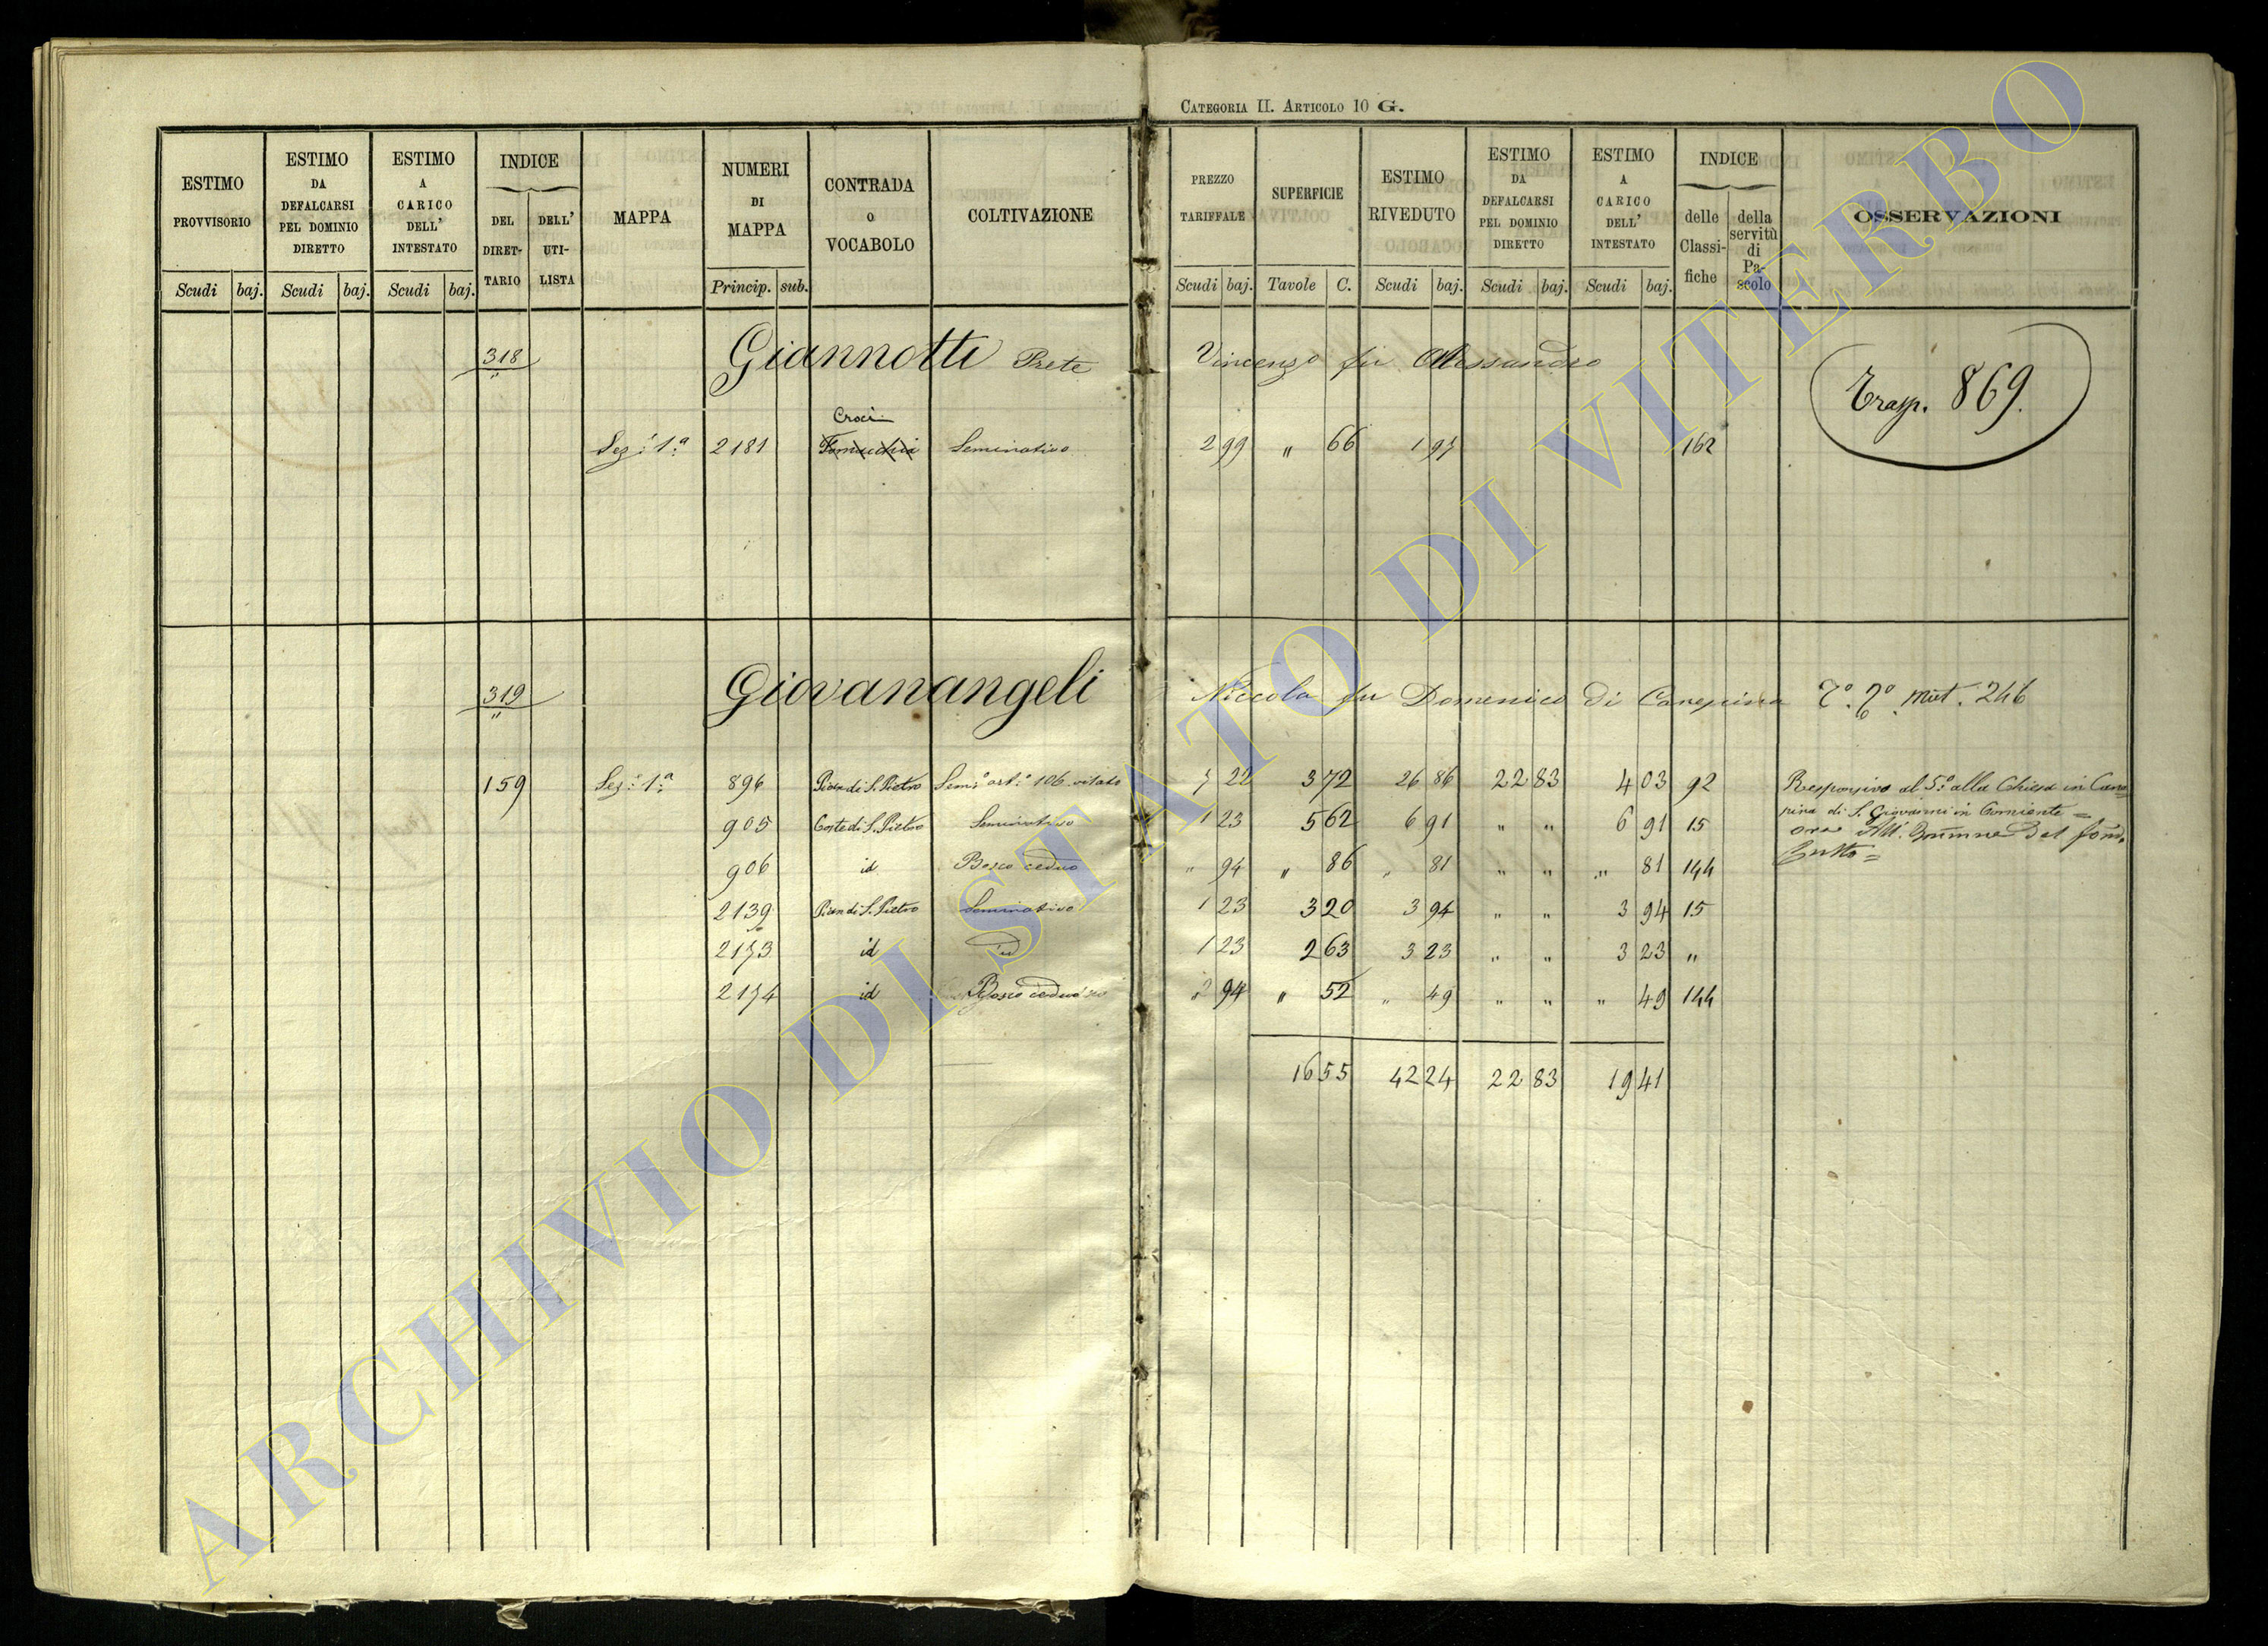 CATEGORIA II. ARTICOLO 10 G.
ESTIMO PROVVISORIO Scudi baj. ESTIMO DA DEFALCARSI PEL DOMINIO DIRETTO Scudi baj. ESTIMO A CARICO DELL' INTESTATO Scudi baj. INDICE DEL DIRET- TARIO DELL' UTI- LISTA MAPPA NUMERI DI MAPPA Princip. sub. CONTRADA O VOCABOLO COLTIVAZIONE PREZZO TARIFFALE Scudi baj. SUPERFICIE Tavole C. ESTIMO RIVEDUTO Scudi baj. ESTIMO DA DEFALCARSI PEL DOMINIO DIRETTO Scudi baj. ESTIMO A CARICO DELL' INTESTATO Scudi baj. INDICE delle Classi- fiche della servitù di Pa- scolo OSSERVAZIONI
318 Giannotti Prete Vincenzo fu Alessandro Trasp. 869.
Croci
Sez: 1ª 2181 Seminativo 2 99 " 66 1 97 162
319 Giovanangeli Niccola fu Domenico di Canepina Mut. 246
159 Sez: 1ª 896 Pian di S. Pietro Sem: art: 106 vitato 7 22 3 72 26 86 22 83 4 03 92 Responsivo al 5° alla Chiesa in Cane=
pina di S. Giovanni in
905 Coste di S. Pietro Seminativo 1 23 5 62 6 91 " " 6 91 15 ora All. del
906 id Bosco ceduo " 94 " 86 " 81 " " " 81 144
2139 Pian di S. Pietro Seminativo 1 23 3 20 3 94 " " 3 94 15
2173 id id 1 23 2 63 3 23 " " 3 23 "
2174 id Bosco ceduo " 94 " 52 " 49 " " " 49 144
16 55 42 24 22 83 19 41
ARCHIVIO DI STATO DI VITERBO